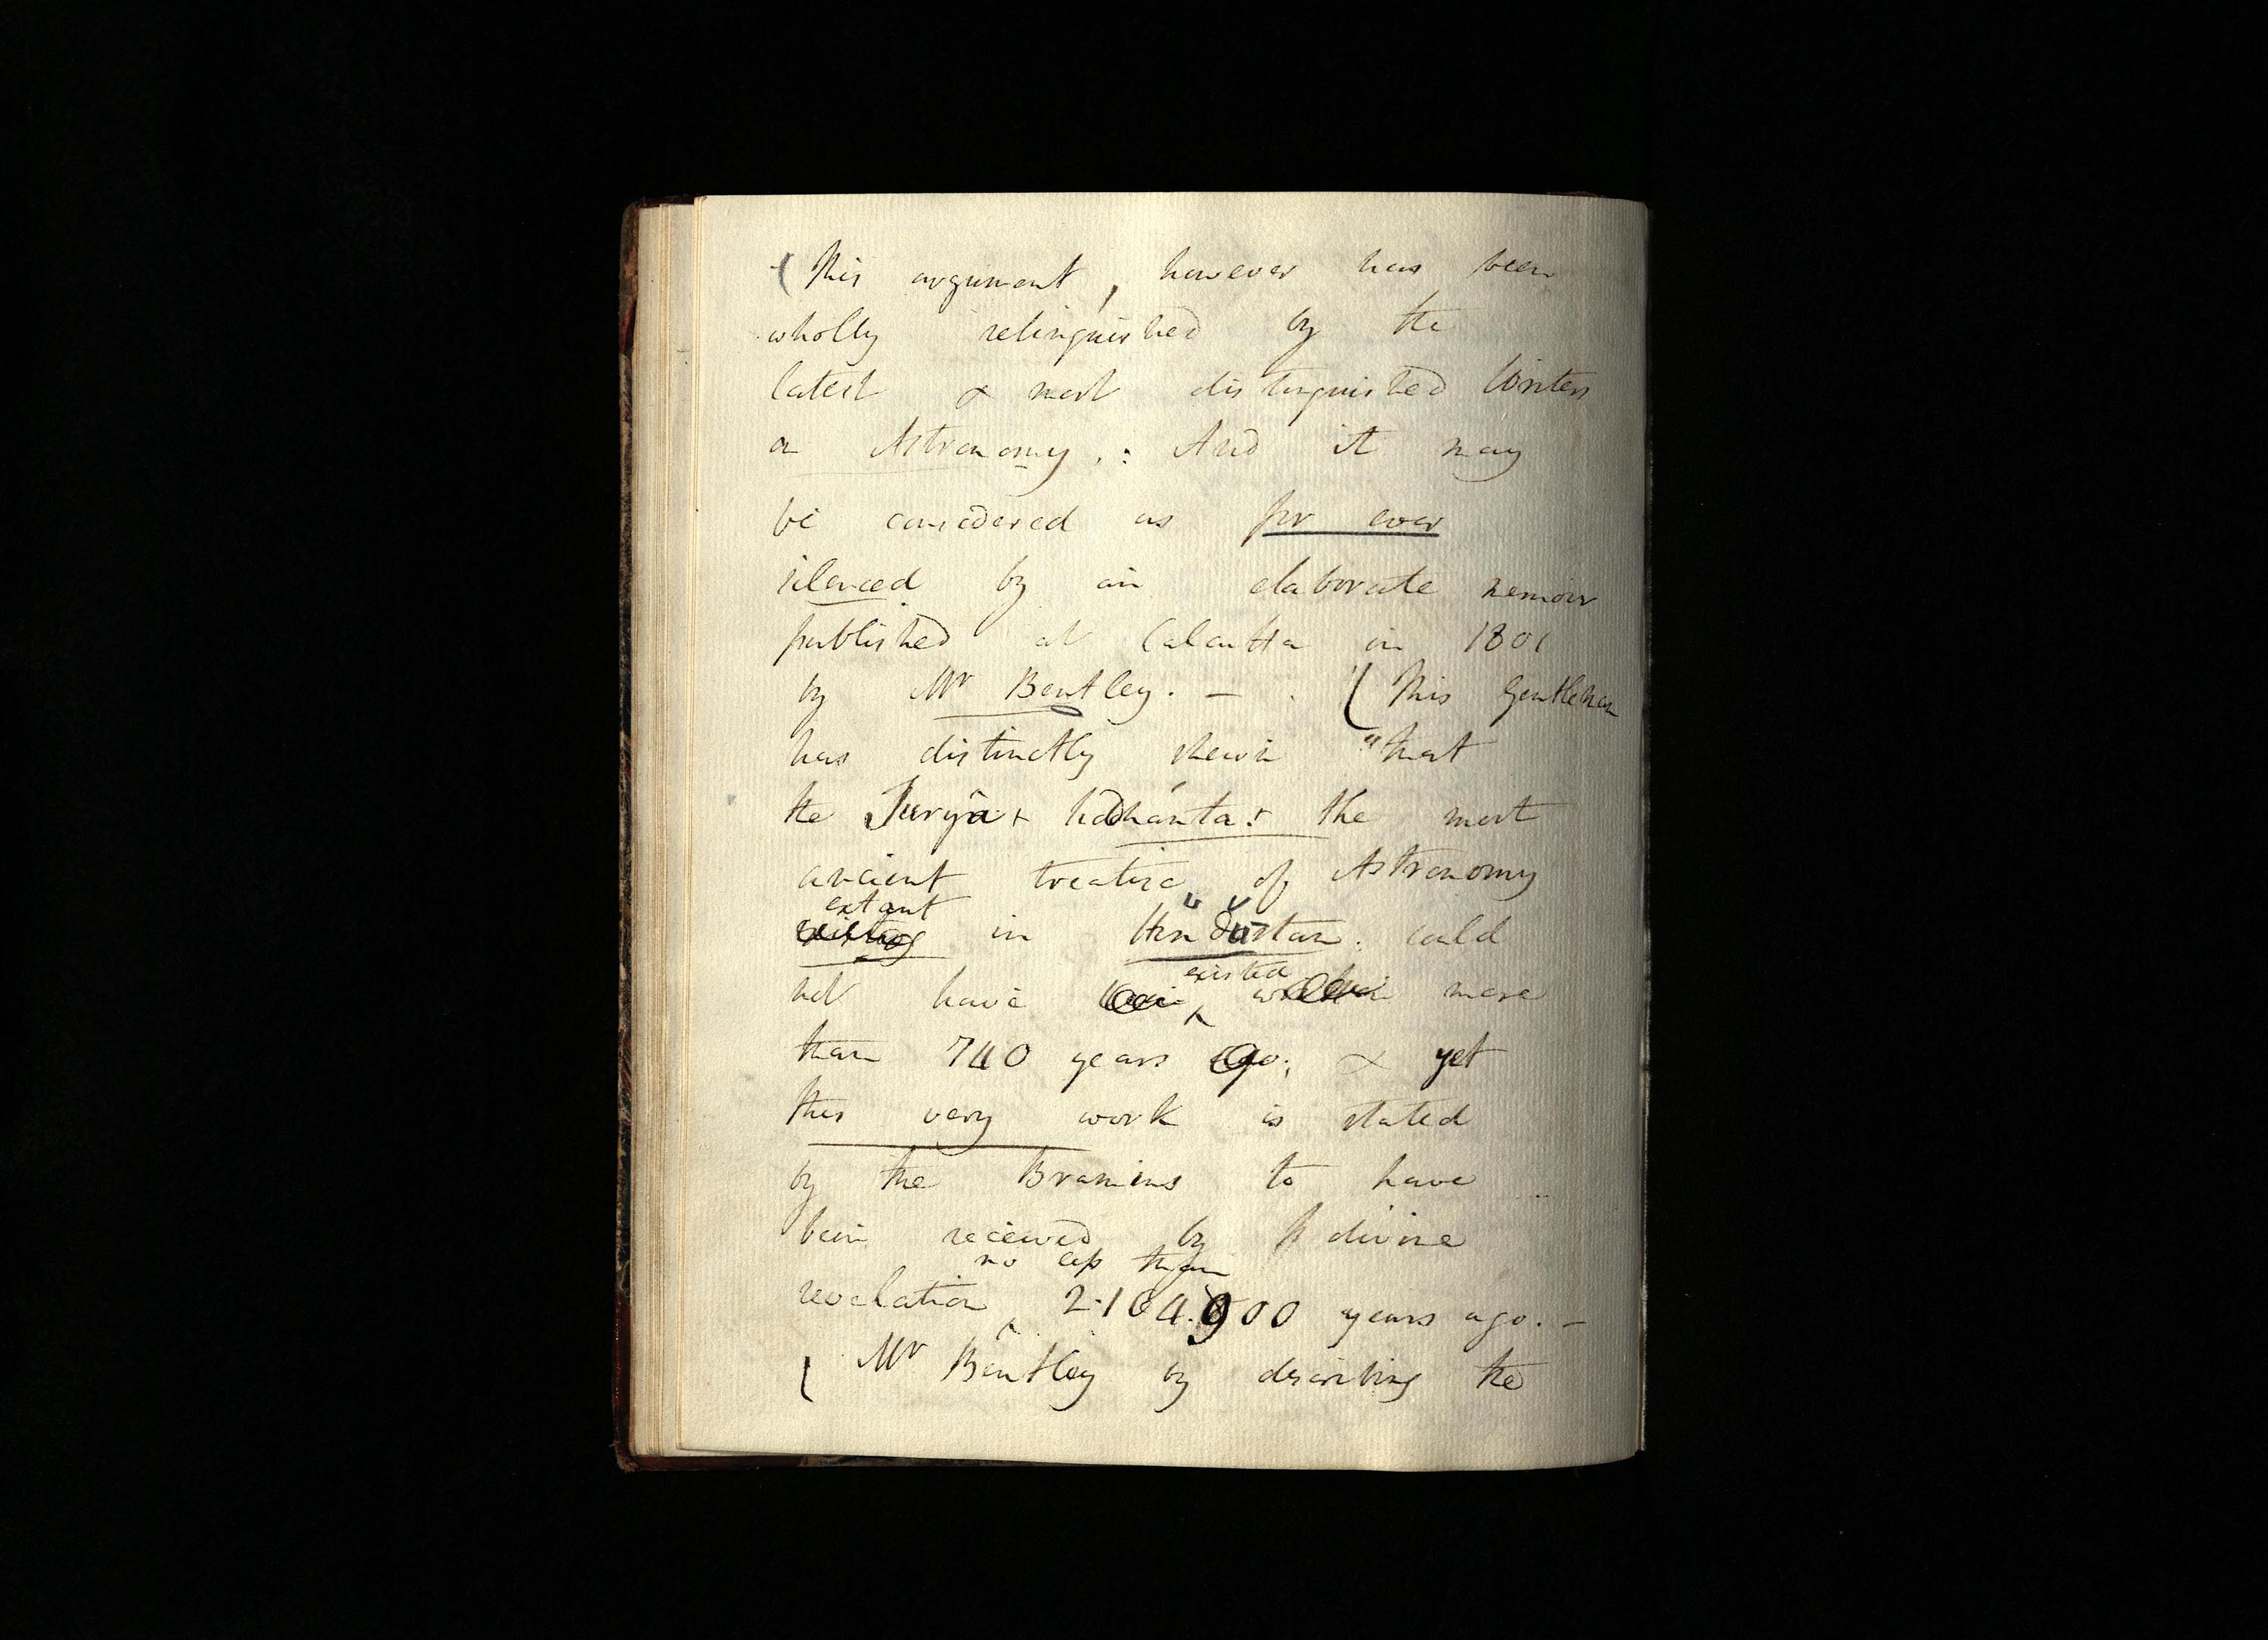 (This argument, however has been
wholly relinquished by the
latest & most distinguished Writers
on Astronomy.: And it may
be considered as for ever
silenced by an elaborate memoir
published at Calcutta in 1801
by Mr Bentley. — (This Gentleman
has distinctly shewn "that
the Surya + Sidhanta + the most
ancient treatise of Astronomy
extant
existing in Hindustan. could
existed
not have been written more
than 740 years ago; & yet
this very work is stated
by the Bramins to have
been received by divine
no less than
revelation 2.164.900 years ago. —
( Mr Bentley by describing the